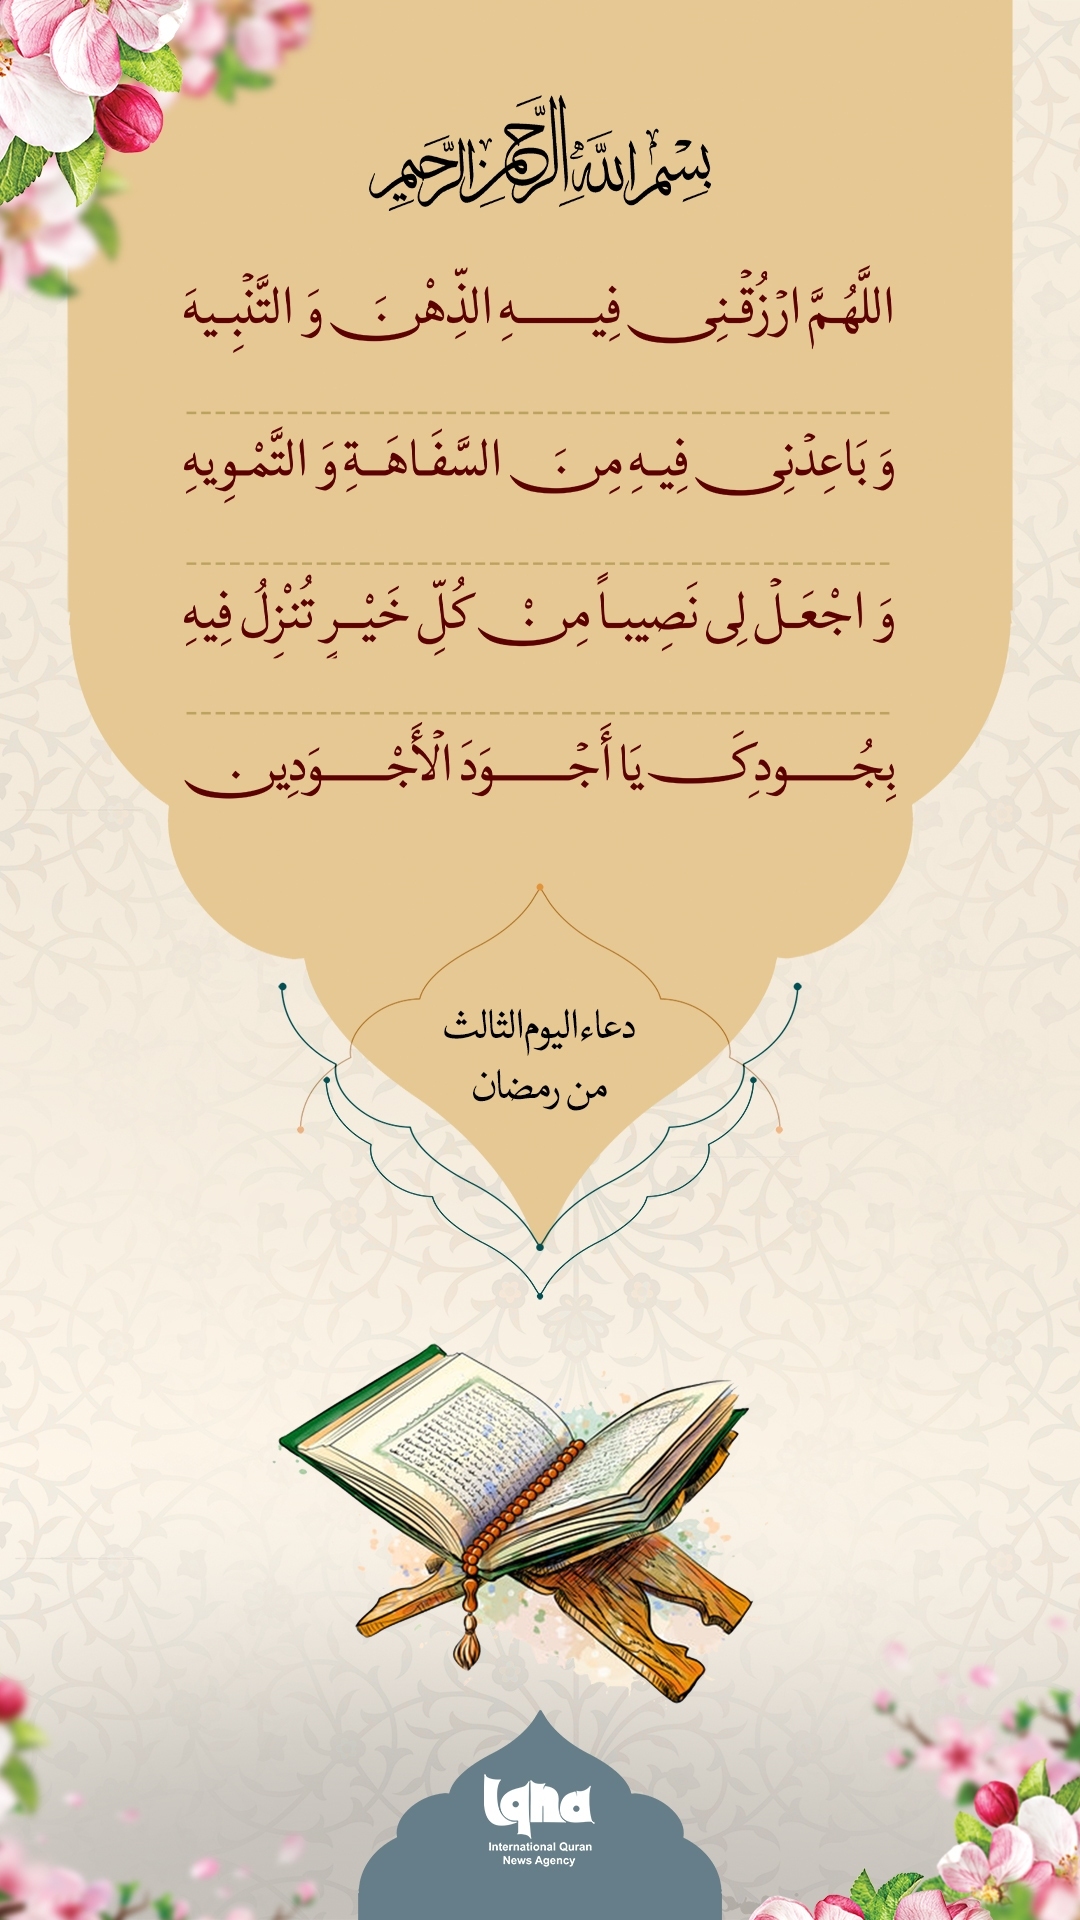 بِسْمِ اللَّهِ الرَّحْمَٰنِ الرَّحِيمِ
اللَّهُمَّ ارْزُقْنِی فِيـــهِ الذِّهْنَ وَ التَّنْبِيهَ
وَ بَاعِدْنِی فِيهِ مِنَ السَّفَاهَةِ وَ التَّمْوِيهِ
وَ اجْعَلْ لِی نَصِيباً مِنْ كُلِّ خَيْرٍ تُنْزِلُ فِيهِ
بِجُــودِكَ يَا أَجْــوَدَ الْأَجْــوَدِين
دعاء اليوم الثالث
من رمضان
Iqna
International Quran
News Agency